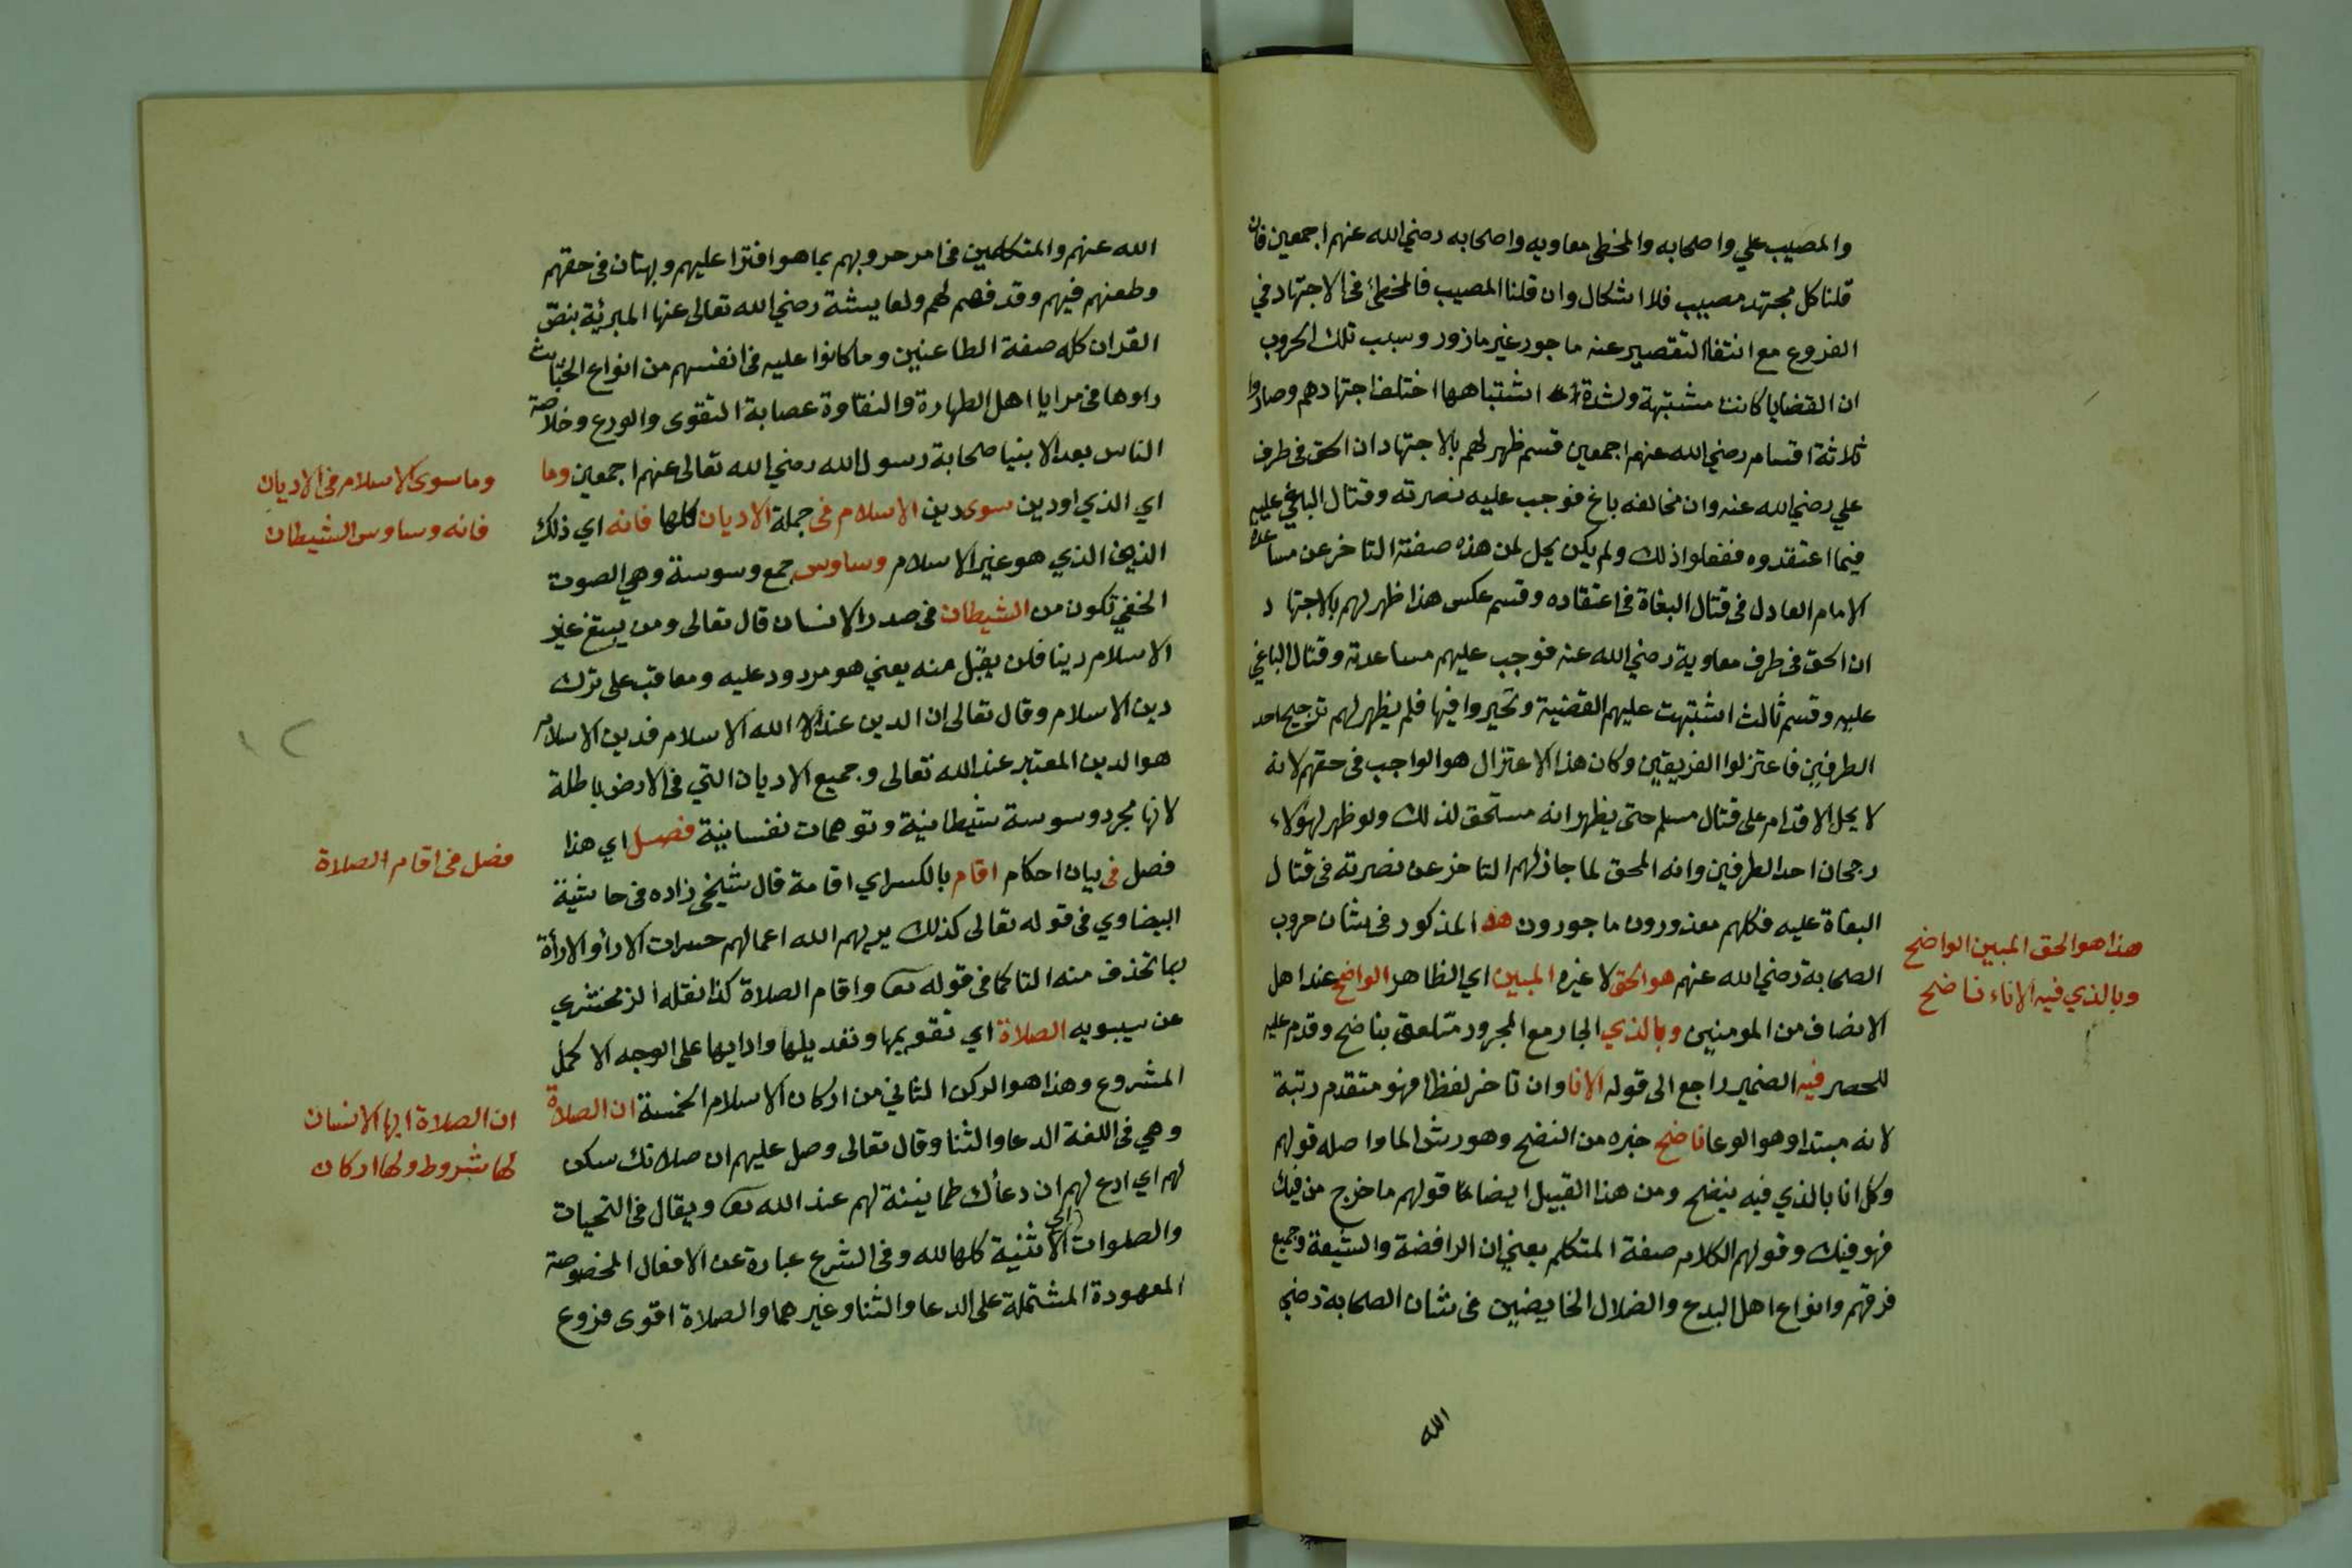 والمصيب علي واصحابه والمخطى معاويه واصحابه رضي الله عنهم اجمعين فان
قلنا كل مجتهد مصيب فلا اشكال وان قلنا المصيب فالمخطئ فى الاجتهاد في
الفروع مع انتفا التقصير عنه ماجور غير مازور وسبب تلك الحروب
ان القضايا كانت مشتبهة ولشدة اشتباهها اختلف اجتهادهم وصاروا
ثلاثة اقسام رضي الله عنهم اجمعين قسم ظهر لهم بالاجتهاد ان الحق فى طرف
علي رضي الله عنه وان مخالفه باغ فوجب عليه نصرته وقتال الباغي عليه
فيما اعتقدوه ففعلوا ذلك ولم يكن يحل لمن هذه صفته التاخر عن مساعدة
الامام العادل فى قتال البغاة فى اعتقاده وقسم عكس هذا ظهر لهم بالاجتهاد
ان الحق فى طرف معاوية رضي الله عنه فوجب عليهم مساعدته وقتال الباغي
عليه وقسم ثالث اشتبهت عليهم القضية وتحيروا فيها فلم يظهر لهم ترجيح احد
الطرفين فاعتزلوا الفريقين وكان هذا الاعتزال هو الواجب فى حقهم لانه
لا يحل الاقدام على قتال مسلم حتى يظهر انه مستحق لذلك ولو ظهر لهؤلاء
رجحان احد الطرفين وانه المحق لما جاز لهم التاخر عن نصرته فى قتال
البغاة عليه فكلهم معذورون ماجورون هذا المذكور فى شان حروب
الصحابة رضي الله عنهم هو الحق لا غيره المبين اي الظاهر الواضح عند اهل
الانصاف من المومنين وبالذي الجار مع المجرور متعلق بناضح وقدم عليه
للحصر فيه الضمير راجع الى قوله الانا وان تاخر لفظا فهو متقدم رتبة
لانه مبتدا وهو الوعا ناضح خبره من النضح وهو رش الما واصله قولهم
وكل انا بالذي فيه ينضح ومن هذا القبيل ايضا قولهم ما خرج من فيك
فهو فيك وقولهم الكلام صفة المتكلم يعني ان الرافضة والشيعة وجميع
فرقهم وانواع اهل البدع والضلال الخايضين فى شان الصحابة رضي
الله
هذا هو الحق المبين الواضح
وبالذي فيه الاناء ناضح
الله عنهم والمتكلمين فى امر حروبهم بما هو افترا عليهم وبهتان فى حقهم
وطعنهم فيهم وقدفهم لهم ولعايشة رضي الله تعالى عنها المبرئة بنص
القران كله صفة الطاعنين وما كانوا عليه فى انفسهم من انواع الخبائث
راوها فى مرايا اهل الطهارة والنقاوة عصابة التقوى والورع وخلاصة
الناس بعد الانبيا صحابة رسول الله رضي الله تعالى عنهم اجمعين وما
اي الذي او دين سوى دين الاسلام فى جملة الاديان كلها فانه اي ذلك
الدين الذي هو غير الاسلام وساوس جمع وسوسة وهي الصوت
الخفي تكون من الشيطان فى صدر الانسان قال تعالى ومن يبتغ غير
الاسلام دينا فلن يقبل منه يعني هو مردود عليه ومعاقب على ترك
دين الاسلام وقال تعالى ان الدين عند الله الاسلام فدين الاسلام
هو الدين المعتبر عند الله تعالى وجميع الاديان التي فى الارض باطلة
لانها مجرد وسوسة شيطانية وتوهمات نفسانية فصل اي هذا
فصل فى بيان احكام اقام بالكسر اي اقامة قال شيخي زاده فى حاشية
البيضاوي فى قوله تعالى كذلك يريهم الله اعمالهم حسرات الارأ والارأة
بما تحذف منه التا كما فى قوله تعـ واقام الصلاة كذا نقله الزمخشري
عن سيبويه الصلاة اي تقويمها وتعديلها وادايها على الوجه الاكمل
المشروع وهذا هو الركن الثاني من اركان الاسلام الخمسة ان الصلاة
وهي فى اللغة الدعا والثنا وقال تعالى وصل عليهم ان صلاتك سكن
لهم اي ادع لهم ان دعاك طمانينة لهم عند الله تعـ ويقال فى التحيات
والصلوات الاثنية كلها لله وفى الشرع عبارة عن الافعال المخصوصة
المعهودة المشتملة على الدعا والثنا وغيرهما والصلاة اقوى فروع
وما سوى الاسلام فى الاديان
فانه وساوس الشيطان
فصل فى اقام الصلاة
ان الصلاة ايها الانسان
لها شروط ولها اركان